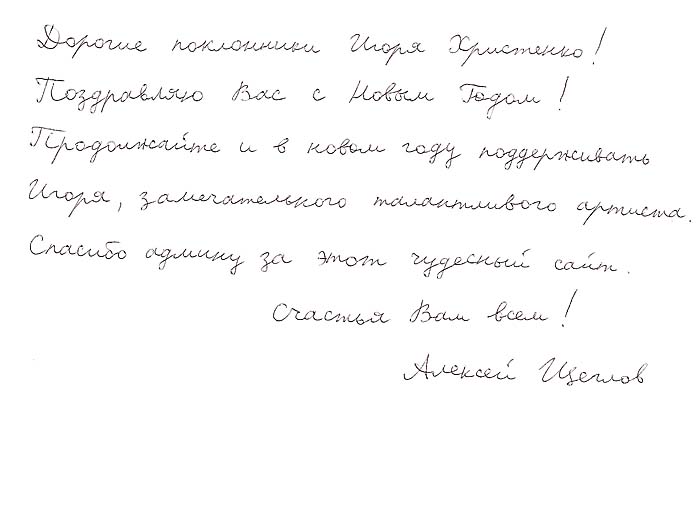 Дорогие поклонники Игоря Христенко!
Поздравляю Вас с Новым Годом!
Продолжайте и в новом году поддерживать
Игоря, замечательного талантливого артиста.
Спасибо админу за этот чудесный сайт.
Счастья Вам всем!
Алексей Щеглов